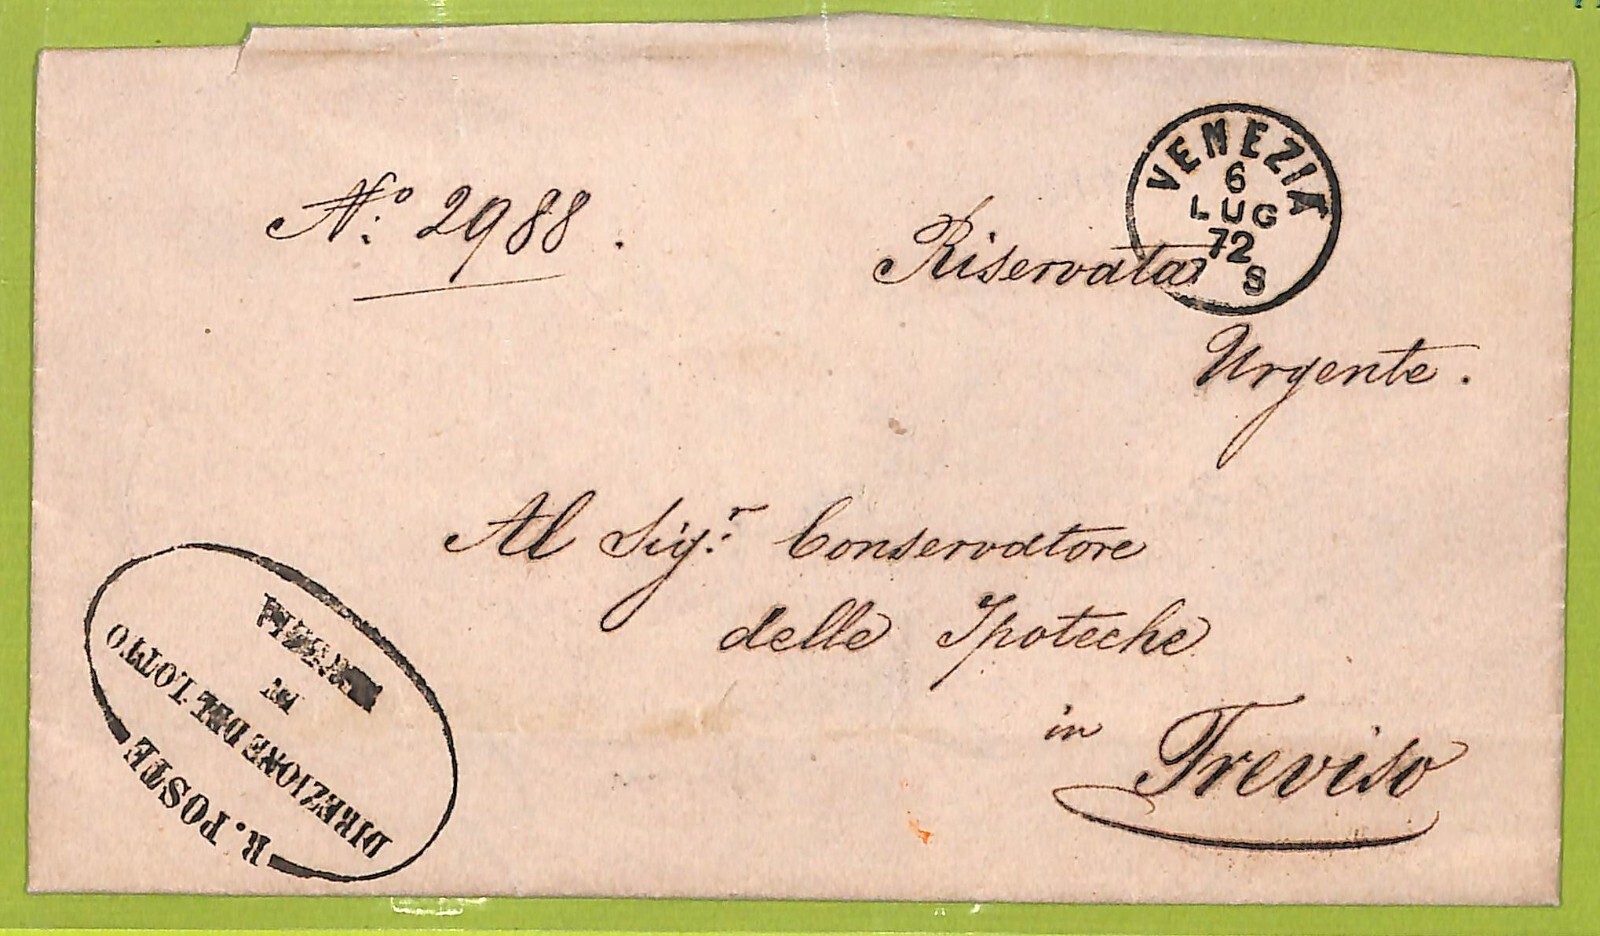 VENEZIA
6
LUG
72
8
Nº: 2988.
Riservata
Urgente.
Al Sig:r Conservatore
delle Ipoteche
in Treviso
R. POSTE
DIREZIONE DEL LOTTO
DI
VENEZIA